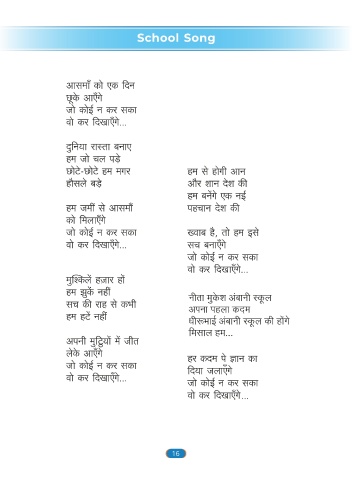 School Song
आसमाँ को एक दिन
छूके आएँगे
जो कोई न कर सका
वो कर दिखाएँगे...
दुनिया रास्ता बनाए
हम जो चल पड़े
छोटे-छोटे हम मगर
हौसले बड़े
हम जमीं से आसमाँ
को मिलाएँगे
जो कोई न कर सका
वो कर दिखाएँगे...
मुश्किलें हजार हों
हम झुकें नहीं
सच की राह से कभी
हम हटें नहीं
अपनी मुट्ठियों में जीत
लेके आएँगे
जो कोई न कर सका
वो कर दिखाएँगे...
हम से होगी आन
और शान देश की
हम बनेंगे एक नई
पहचान देश की
ख्वाब है, तो हम इसे
सच बनाएँगे
जो कोई न कर सका
वो कर दिखाएँगे...
नीता मुकेश अंबानी स्कूल
अपना पहला कदम
धीरूभाई अंबानी स्कूल की होंगे
मिसाल हम...
हर कदम पे ज्ञान का
दिया जलाएँगे
जो कोई न कर सका
वो कर दिखाएँगे...
16